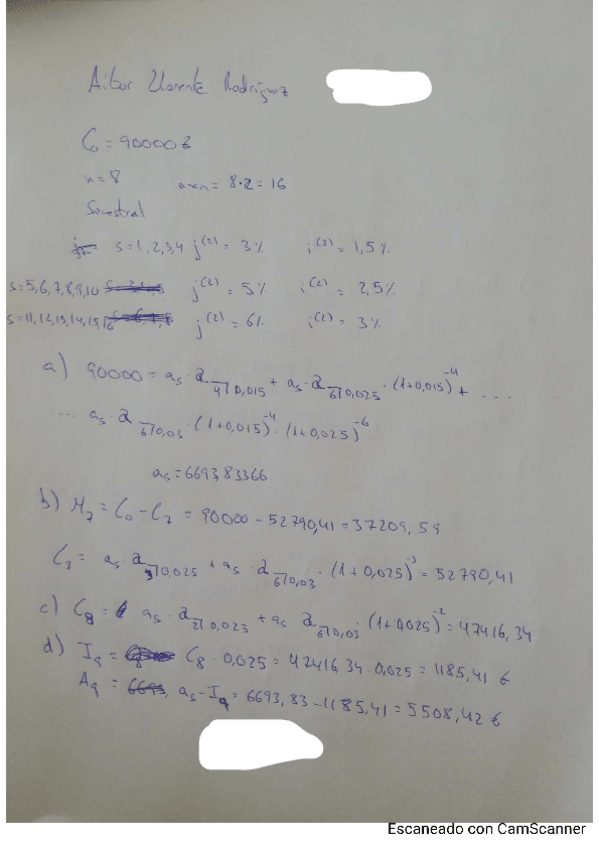 Aitor Llorente Rodríguez
C₀ = 90000 €
n = 8 mxn = 8·2 = 16
Semestral
s = 1, 2, 3, 4 j⁽²⁾ = 3% i⁽²⁾ = 1,5%
s = 5, 6, 7, 8, 9, 10 j⁽²⁾ = 5% i⁽²⁾ = 2,5%
s = 11, 12, 13, 14, 15, 16 j⁽²⁾ = 6% i⁽²⁾ = 3%
a) 90000 = as · a 4⅂0,015 + as · a 6⅂0,025 · (1+0,015)⁻⁴ + ...
... as · a 6⅂0,03 · (1+0,015)⁻⁴ · (1+0,025)⁻⁶
as = 6693,83366
b) M₇ = C₀ - C₇ = 90000 - 52790,41 = 37209,59
C₇ = as · a 3⅂0,025 + as · a 6⅂0,03 · (1+0,025)⁻³ = 52790,41
c) C₈ = as · a 2⅂0,025 + as · a 6⅂0,03 · (1+0,025)⁻² = 47416,34
d) I₉ = C₈ · 0,025 = 42416,34 · 0,025 = 1185,41 €
A₉ = as - I₉ = 6693,83 - 1185,41 = 5508,42 €
Escaneado con CamScanner